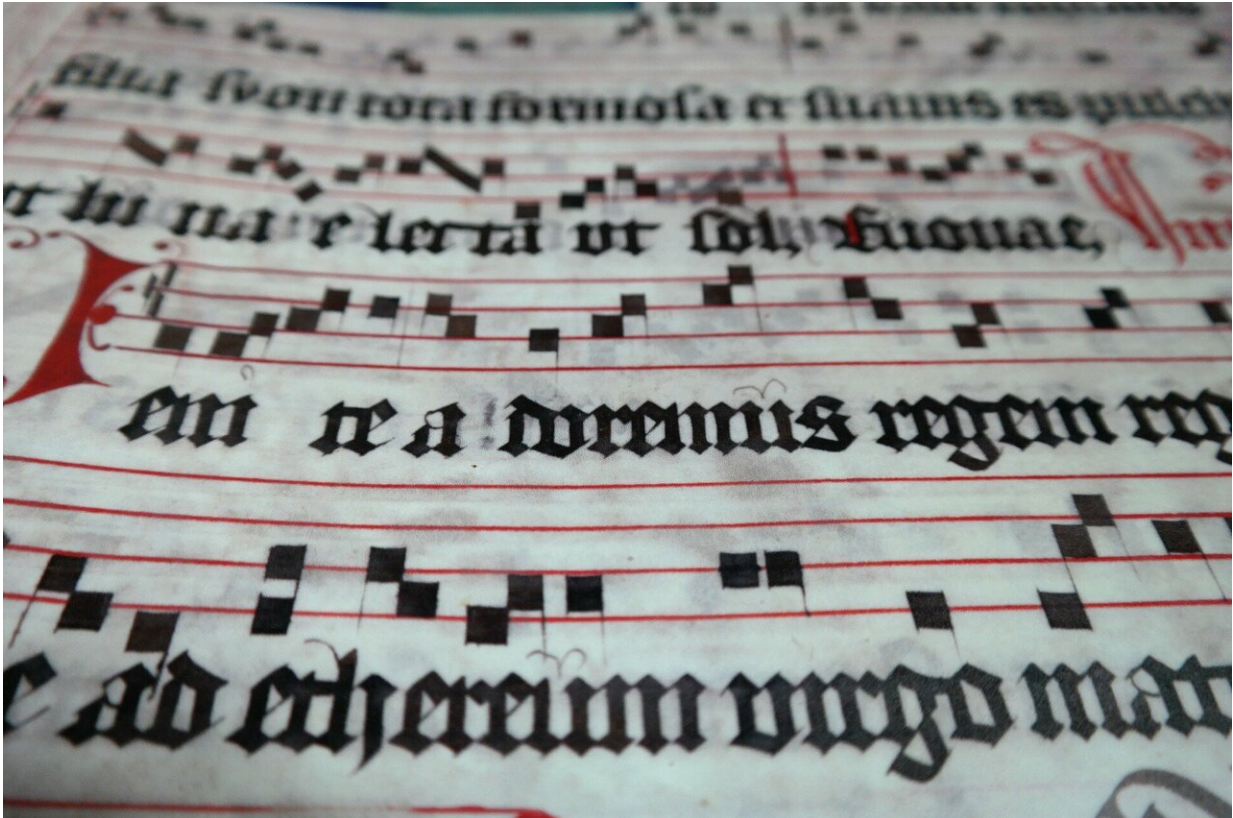 filia syon tota formosa et suauis es pulchr
ut lu na e lecta ut sol, Euouae,
eni te a doremus regem reg
e ad ethereum uirgo mat